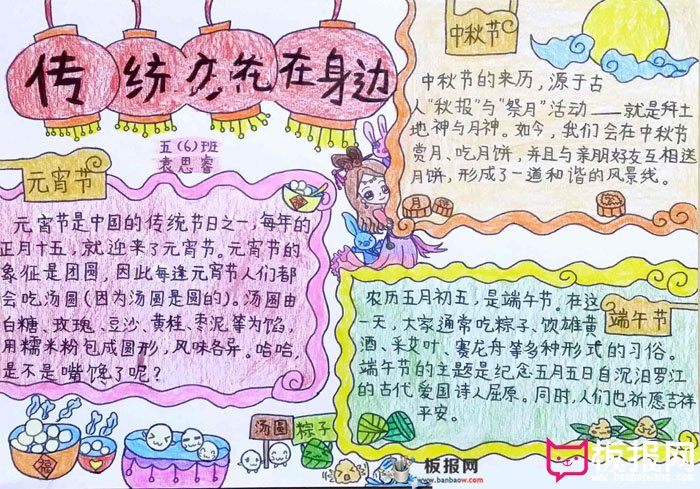 传统文化在身边
五(6)班
袁思睿
元宵节
元宵节是中国的传统节日之一，每年的
正月十五，就迎来了元宵节。元宵节的
象征是团圆，因此每逢元宵节人们都
会吃汤圆(因为汤圆是圆的)。汤圆由
白糖、玫瑰、豆沙、黄桂、枣泥等为馅，
用糯米粉包成圆形，风味各异。哈哈，
是不是嘴馋了呢？
中秋节
中秋节的来历，源于古
人“秋报”与“祭月”活动——就是拜土
地神与月神。如今，我们会在中秋节
赏月、吃月饼，并且与亲朋好友互相送
月饼，形成了一道和谐的风景线。
月
端午节
农历五月初五，是端午节。在这
一天，大家通常吃粽子、饮雄黄
酒、采艾叶、赛龙舟等多种形式的习俗。
端午节的主题是纪念五月五日自沉汨罗江
的古代爱国诗人屈原。同时，人们也祈愿吉祥
平安。
福
汤圆
粽子
板报网
www.banbaow.com
板报网
www.banbaowang.com